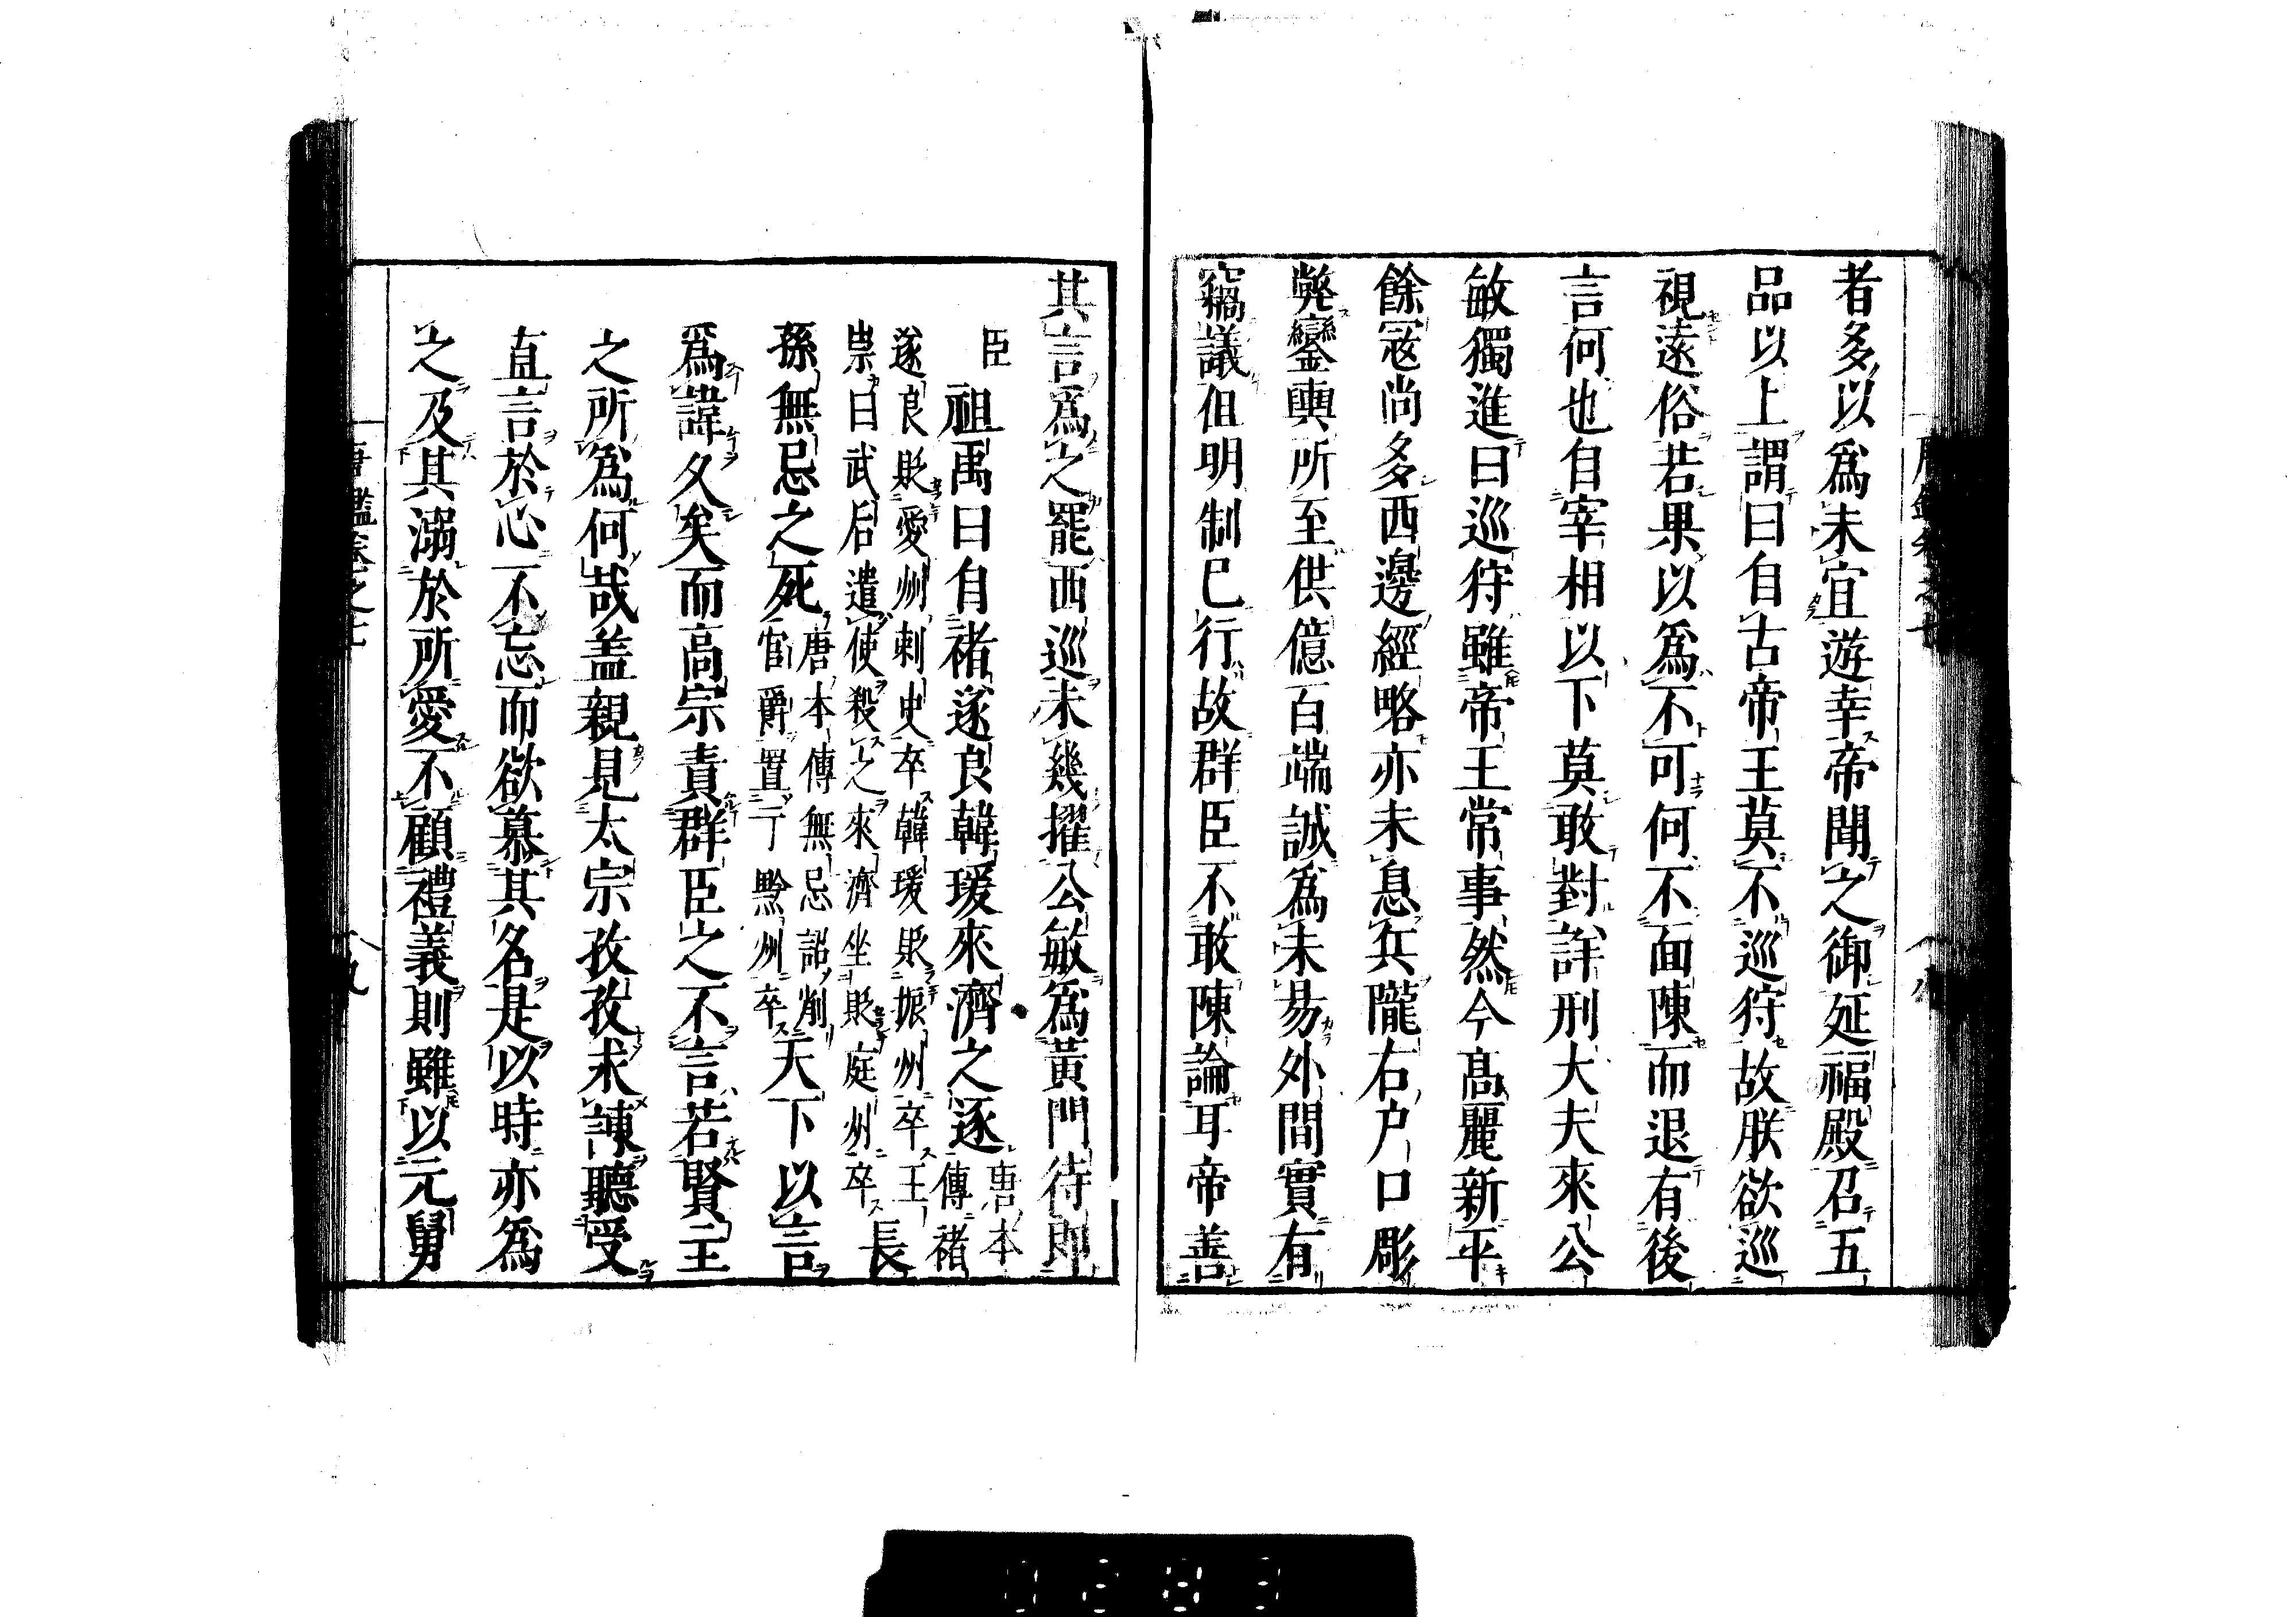 者多以爲未宜遊幸帝聞之御延福殿召五
品以上謂曰自古帝王莫不巡狩故朕欲巡
視遠俗若果以爲不可何不面陳而退有後
言何也自宰相以下莫敢對詳刑大夫來公
敏獨進曰巡狩雖帝王常事然今髙麗新平
餘寇尚多西邊經略亦未息兵隴右户口彫
弊鑾輿所至供億百端誠爲未易外間實有
竊議但明制已行故群臣不敢陳論耳帝善
其言爲之罷西巡未幾擢公敏爲黃門待郎
臣祖禹曰自褚遂良韓瑗來濟之逐唐本傳褚
遂良貶愛州刺史卒韓瑗貶振州卒王
崇曰武后遣使殺之來濟坐貶庭州卒長
孫無忌之死唐本傳無忌詔削官爵置于黔州卒天下以言
爲諱久矣而高宗責群臣之不言若賢主
之所爲何哉盖親見太宗孜孜求諫聽受
直言於心不忘而欲慕其名是以時亦爲
之及其溺於所愛不顧禮義則雖以元舅
唐鑑卷之七
九